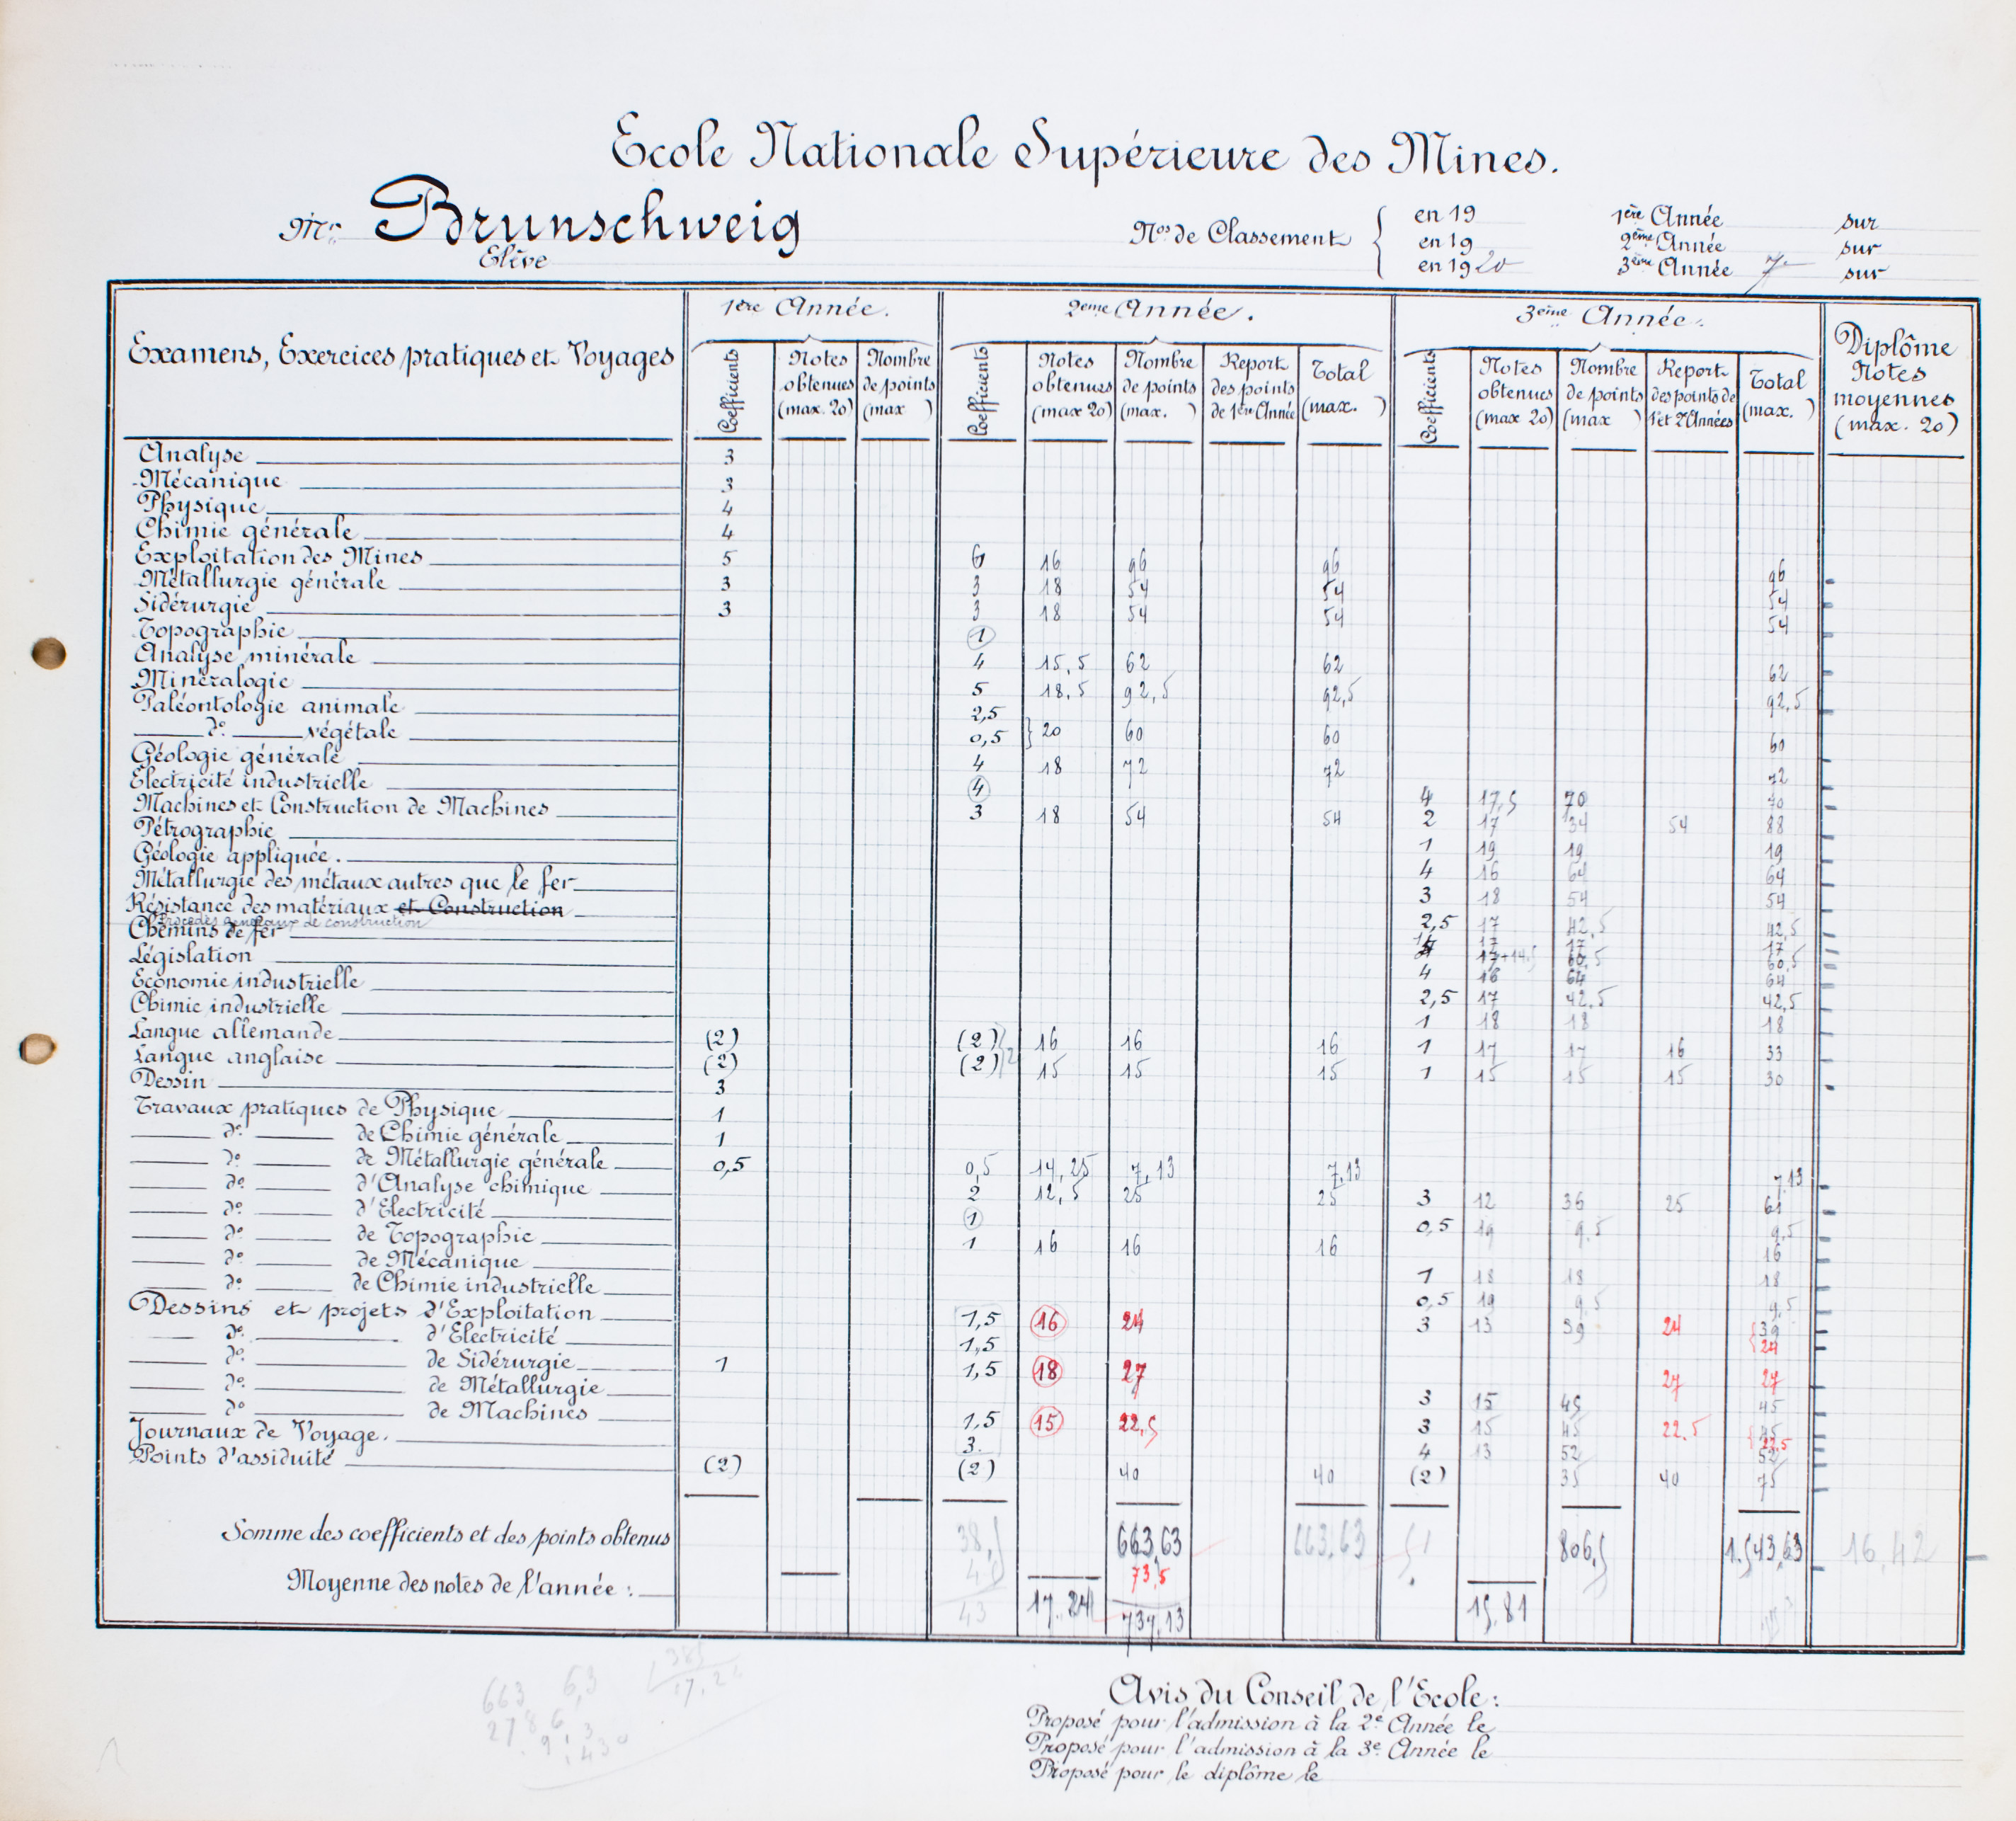 Ecole Nationale Supérieure des Mines.
Mr. Brunschweig
Elève
Nos. de Classement
en 19 1ère Année sur
en 19 2ème Année sur
en 1920 3ème Année 7 sur
Examens, Exercices pratiques et Voyages
1ère Année. 2eme Année. 3eme Année. Diplôme Notes moyennes (max. 20)
Coefficients Notes obtenues (max. 20) Nombre de points (max )
Coefficients Notes obtenues (max 20) Nombre de points (max. ) Report des points de 1ère Année Total (max. )
Coefficients Notes obtenues (max 20) Nombre de points (max ) Report des points de 1et 2 Années Total (max. )
Analyse 3
Mécanique 3
Physique 4
Chimie générale 4
Exploitation des Mines 5 6 16 96 96 96
Métallurgie générale 3 3 18 54 54 54
Sidérurgie 3 3 18 54 54 54
Topographie 1
Analyse minérale 4 15,5 62 62 62
Minéralogie 5 18,5 92,5 92,5 92,5
Paléontologie animale 2,5
do végétale 0,5 } 20 60 60 60
Géologie générale 4 18 72 72 72
Electricité industrielle 4 4 17,5 70 70
Machines et Construction de Machines 3 18 54 54 2 17 34 54 88
Pétrographie 1 19 19 19
Géologie appliquée. 4 16 64 64
Métallurgie des métaux autres que le fer 3 18 54 54
Résistance des matériaux et Construction 2,5 17 42,5 42,5
Procédés généraux de construction 17 17 17
Chemins de fer 17+14,5 60,5 60,5
Législation 4 16 64 64
Economie industrielle 2,5 17 42,5 42,5
Chimie industrielle 1 18 18 18
Langue allemande (2) (2) 16 16 16 1 17 17 16 33
Langue anglaise (2) (2) 15 15 15 1 15 15 15 30
Dessin 3
Travaux pratiques de Physique 1
do de Chimie générale 1
do de Métallurgie générale 0,5 0,5 14,25 7,13 7,13 7,13
do d'Analyse chimique 2 12,5 25 25 3 12 36 25 61
do d'Electricité 1 0,5 19 9,5 9,5
do de Topographie 1 16 16 16 16
do de Mécanique 1 18 18 18
do de Chimie industrielle 0,5 19 9,5 9,5
Dessins et projets d'Exploitation 1,5 16 24 3 13 39 24 { 39 24
do d'Electricité 1,5
do de Sidérurgie 1 1,5 18 27 27 27
do de Métallurgie 3 15 45 45
do de Machines 1,5 15 22,5 3 15 45 22.5 { 45 22,5
Journaux de Voyage. 3. 4 13 52 52
Points d'assiduité (2) (2) 40 40 (2) 35 40 75
Somme des coefficients et des points obtenus 663,63 663,63 806,5 1.543,63 16,42
73,5
Moyenne des notes de l'année : 43 17,24 737,13 15,81
663
Avis du Conseil de l'Ecole :
Proposé pour l'admission à la 2e Année le
Proposé pour l'admission à la 3e Année le
Proposé pour le diplôme le